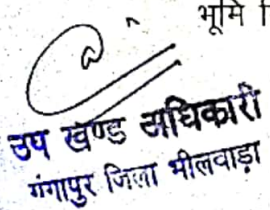 भूमि
उप खण्ड अधिकारी
गंगापुर जिला भीलवाड़ा